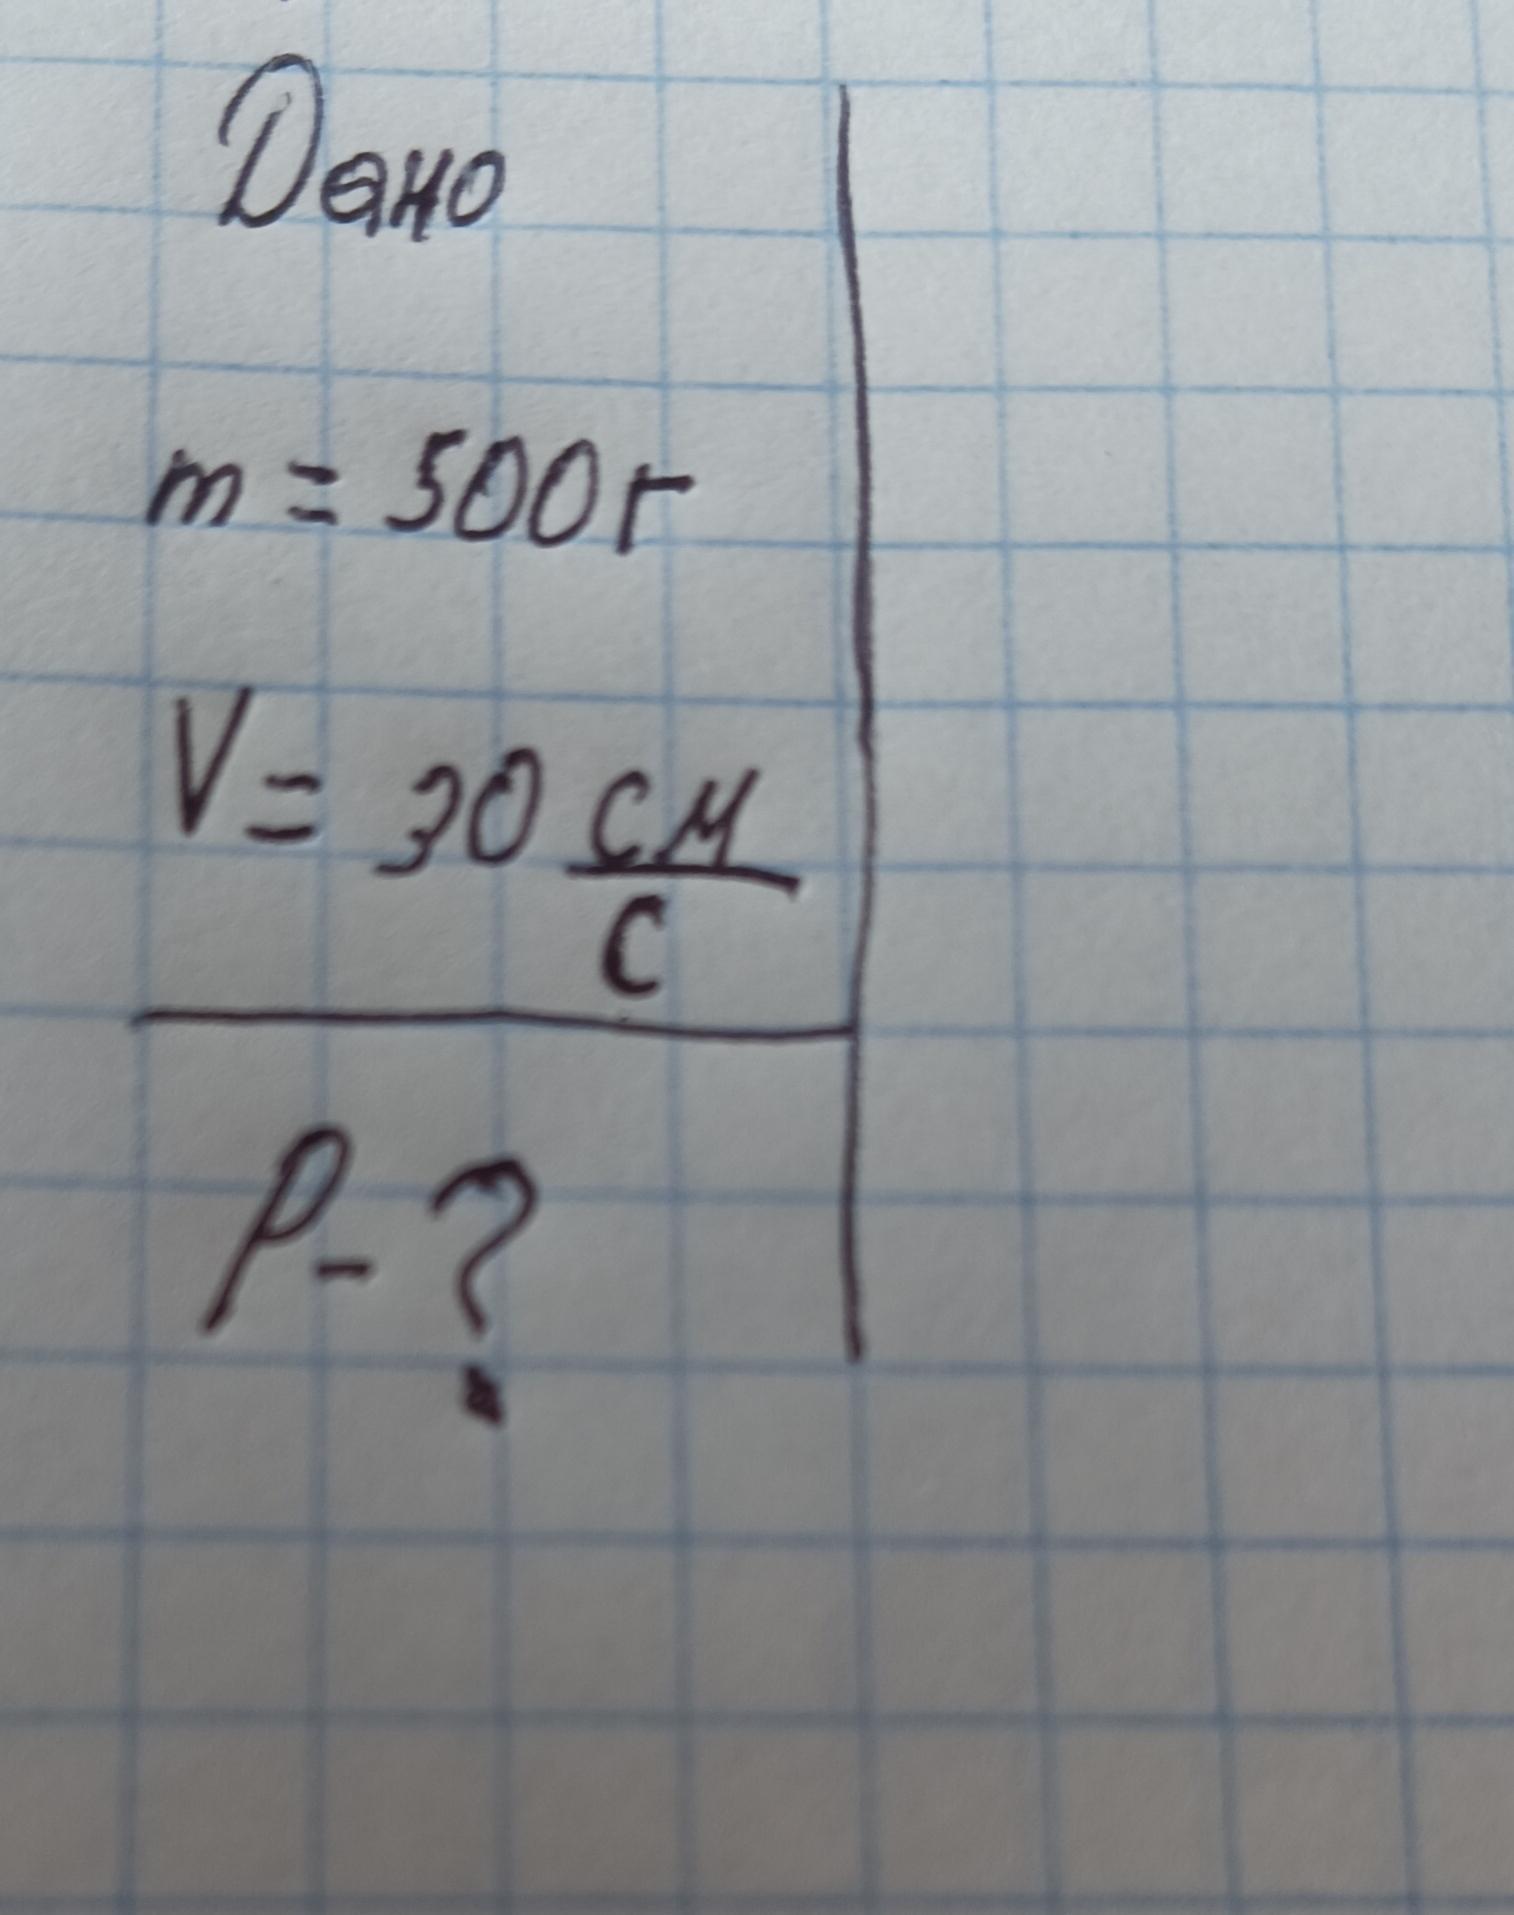 Дано
m = 500г
V = 30 см/с
P - ?